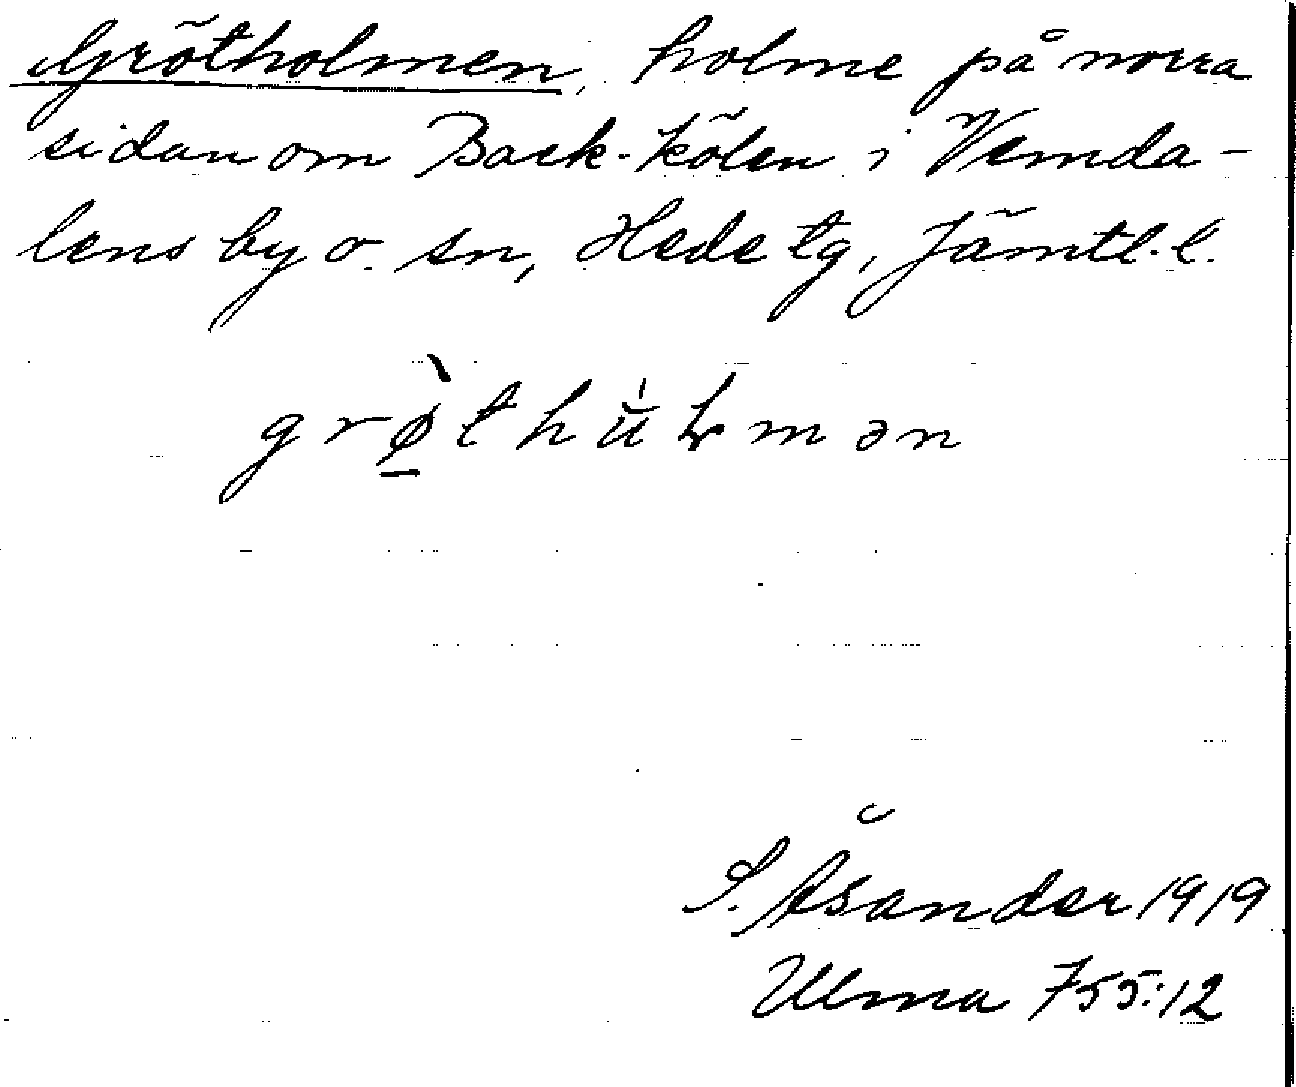 Grötholmen, holme på norra
sidan om Back-Kölen i Vemda-
lens by o. sn, Hede tg, Jämtl. l.
grø̠̀thùɫmən
S. Åsander 1919
Ulma 755:12